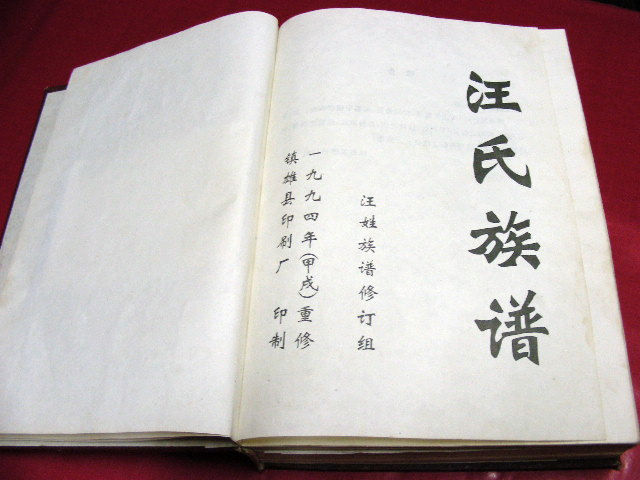 汪氏族谱
汪姓族谱修订组
一九九四年(甲戌)重修
镇雄县印刷厂 印制